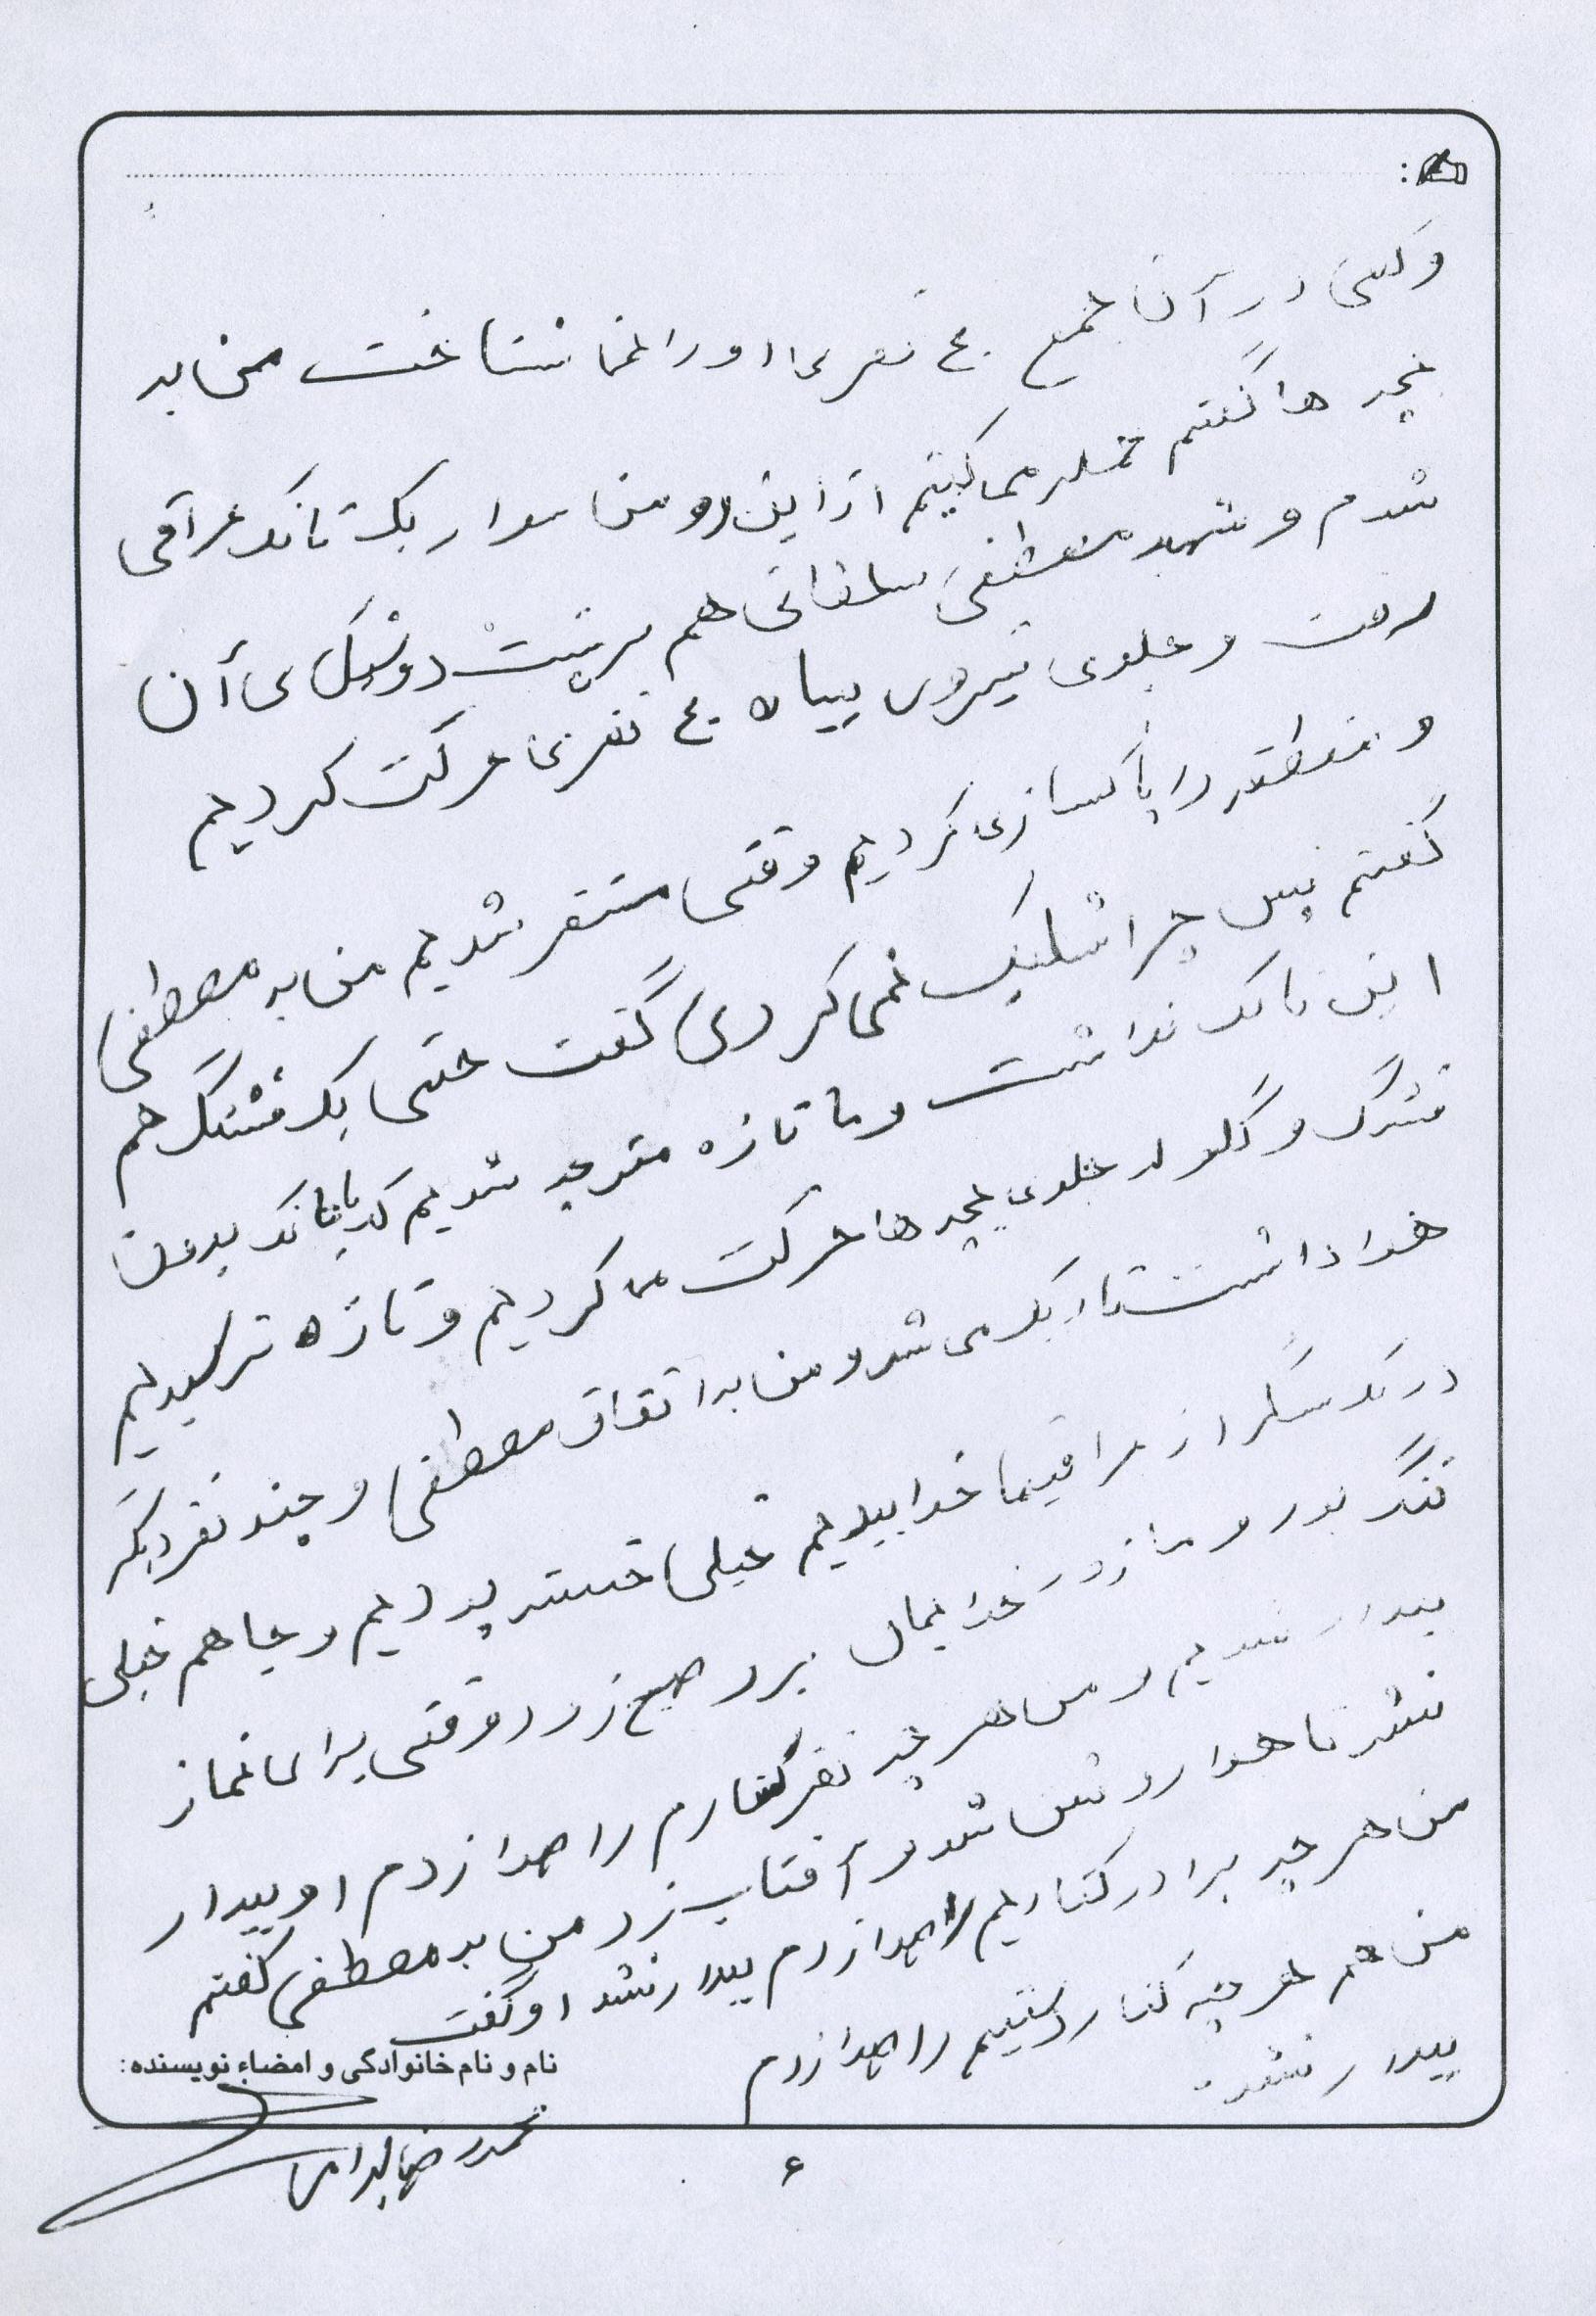 و کسی در آن جمع ۴۰ نفری او را نمی شناخت من به
بچه ها گفتم حمله می کنیم از این رو من سوار یک تانک عراقی
شدم و شهید مصطفی هم پشت دوشکای آن
رفت و جلوی نیروی پیاده ۴۰ نفری حرکت کردیم
و منطقه را پاکسازی کردیم وقتی مستقر شدیم من به مصطفی
گفتم پس چرا شلیک نمی کردی گفت حتی یک فشنگ هم
این تانک نداشت و ما تازه متوجه شدیم که با تانک بدون
فشنگ و گلوله جلوی بچه ها حرکت می کردیم و تازه ترسیدیم
هوا داشت تاریک می شد و من به اتفاق مصطفی و چند نفر دیگر
در یک سنگر از عراقیها خوابیدیم خیلی خسته بودیم و جا هم خیلی
تنگ بود و ما زود خوابمان برد صبح زود وقتی برای نماز
بیدار شدیم و من هر چه نفر کنارم را صدا زدم او بیدار
نشد تا هوا روشن شد و آفتاب زد من به مصطفی گفتم
من هر چه برادر کناریم را صدا زدم بیدار نشد او گفت
من هم هر چه کنار دستیم را صدا زدم
بیدار نشد.
نام و نام خانوادگی و امضاء نویسنده:
۶